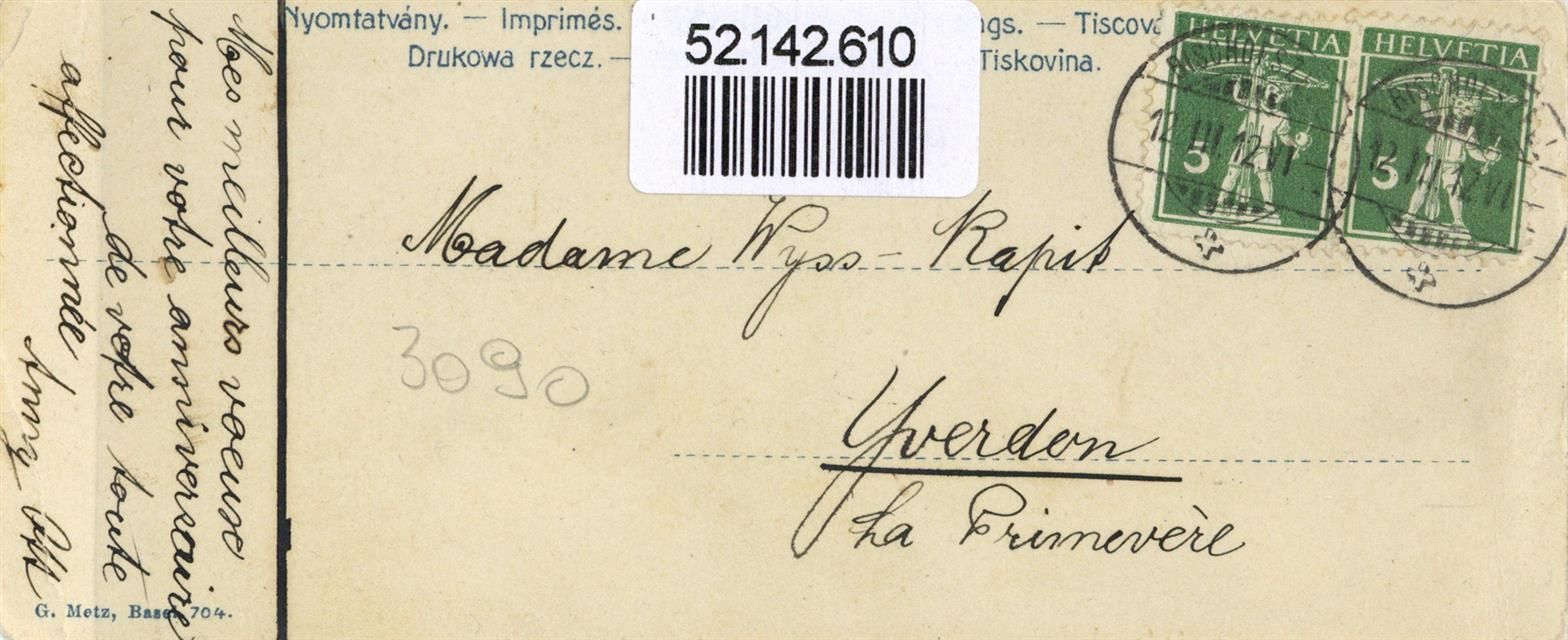 Nyomtatvány. — Imprimés.
ngs. — Tiscova
Drukowa rzecz. —
Tiskovina.
52.142.610
HELVETIA
HELVETIA
5
5
12 III 12 VI
12 III 12 VI
Madame Wyss - Rapit
3090
Yverdon
La Primevère
Mes meilleurs voeux
pour votre anniversaire
de votre toute
affectionnée
Anny Ott
G. Metz, Basel 704.